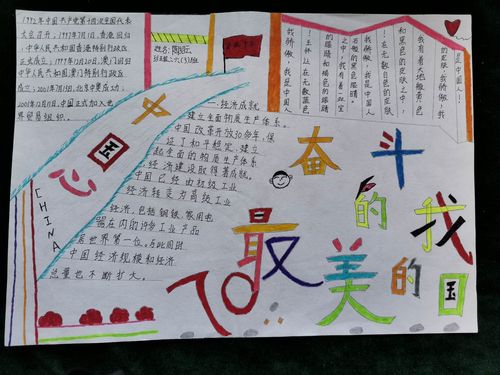 1992年中国共产党第十四次全国代表
大会召开，1997年7月1日，香港回归
，中华人民共和国香港特别行政区
正式成立；1999年12月20日，澳门回归
中华人民共和国，澳门特别行政区
成立；2001年7月13日，北京申奥成功；
2001年12月11日，中国正式加入世
界贸易组织。
姓名：
班级：六(3)班
是中国人！
的皮肤，我骄傲，我
我有着大地般黄色
和黑色的皮肤之中，
在无数白色的皮肤
我骄傲，我是中国人
之中，我有着一双宝
的眼睛和褐色的眼睛
！在无数蓝色
我骄傲，我是中国人
中国心
CHINA
经济成就
建立全面物质生产体系。
中国改革开放30多年，保
证了和平稳定，建立
起全面的物质生产体系
，经济建设取得著成就。
中国已经由初级工业
经济转变为高级工业
经济，包括钢铁，家用电
器在内的许多工业产品
居世界第一位。与此同时
中国经济规模和经济
总量也不断扩大。
奋斗
的我
最美的国
70